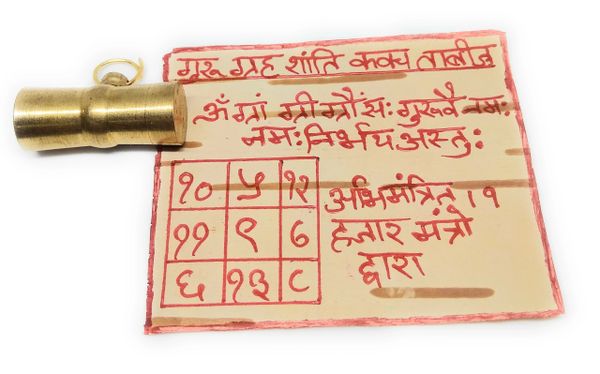 गुरू ग्रह शांति कवच ताबीज
ॐ ग्रां ग्री ग्रौं सः गुरूवै नमः
नमः निर्भय अस्तुः
१० ५ १२
११ ९ ७
६ १३ ८
अभिमंत्रित । १
हजार मंत्रो
द्वारा